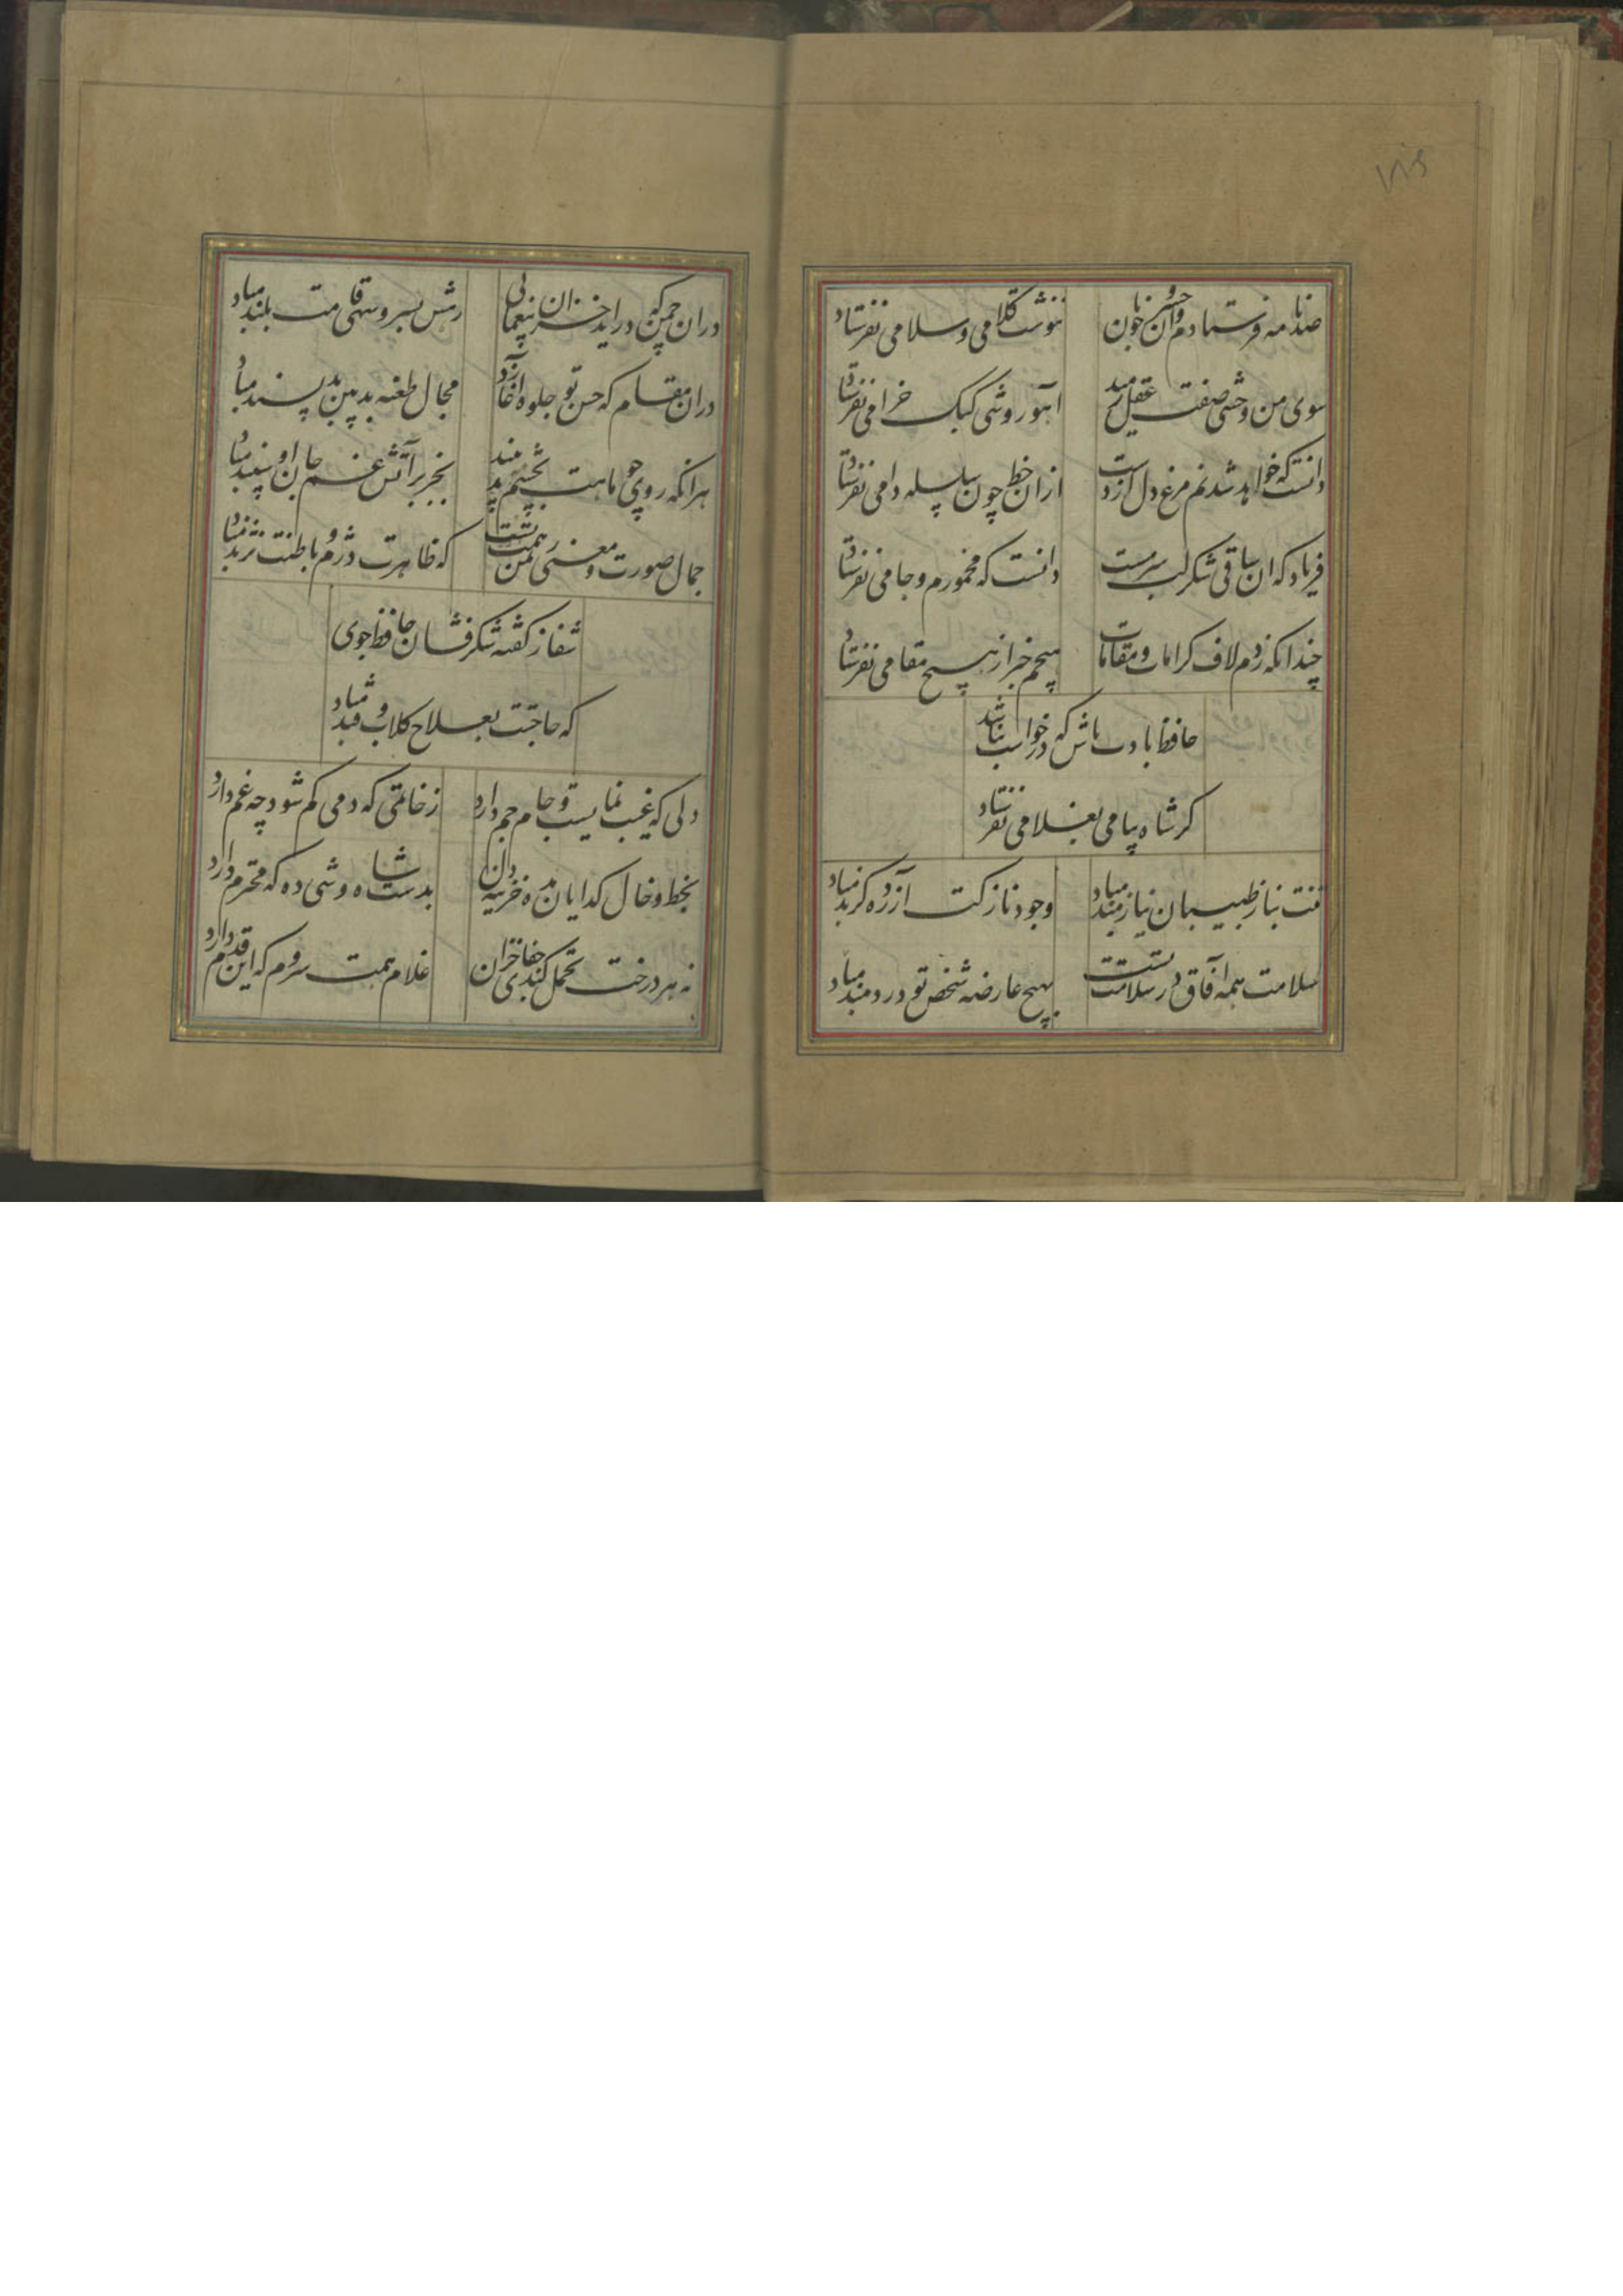 صد نامه فرستادم و آن خسرو خوبان
ننوشت کلامی و سلامی نفرستاد
سوی من وحشی صفت عقل رمیده
آهو روشی کبک خرامی نفرستاد
دانست که خواهد شدنم مرغ دل از دست
ازان خط چون سلسله دامی نفرستاد
فریاد که ان ساقی شکر لب سرمست
دانست که مخمورم و جامی نفرستاد
چندانکه زدم لاف کرامات و مقامات
هیچم خبر از هیچ مقامی نفرستاد
حافظ با دب باش که در خواست نباشد
کر شاه پیامی بغلامی نفرستاد
تنت بناز طبیبان نیازمند مباد
وجود نازکت آزرده کزند مباد
سلامت همه آفاق در سلامت تست
بهیچ عارضه شخص تو دردمند مباد
دران چمن که در اید خزان بیغمائی
رهش بسرو سهی قامت بلند مباد
دران مقام که حسن تو جلوه آغازد
مجال طعنه بد بین بد پسند مباد
هرانکه روی چو ماهت بچشم بد بیند
بجز بر آتش غم جان او سپند مباد
جمال صورت و معنی ز یمن همت تست
که ظاهرت دژم و باطنت نژند مباد
شفا ز کفته شکر فشان حافظ جوی
که حاجتت بعلاج کلاب و قند مباد
دلی که غیب نمایست و جام جم دارد
ز خاتمی که دمی کم شود چه غم دارد
بخط و خال کدایان مده خزینه دل
بدست شاه وشی ده که محترم دارد
نه هر درخت تحمل کند جفای خزان
غلام همت سروم که این قدم دارد